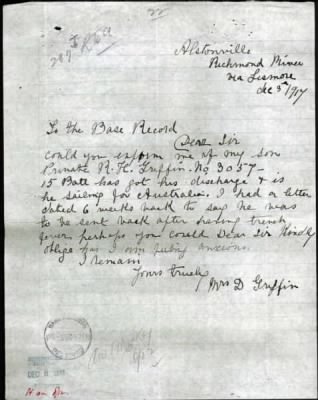 Alstonville
Richmond River
via Lismore
Dec 3rd 1917
To the Base Record
Dear Sir
could you inform me of my son
Private R. H. Griffin. No 3057-
15 Batt has got his discharge & is
he sailing for Australia. I had a letter
dated 6 weeks back to say he was
to be sent back after having trench
fever perhaps you could Dear Sir Kindly
oblige has I am very anxious.
I remain
Yours truely
Mrs D Griffin
DEC 8